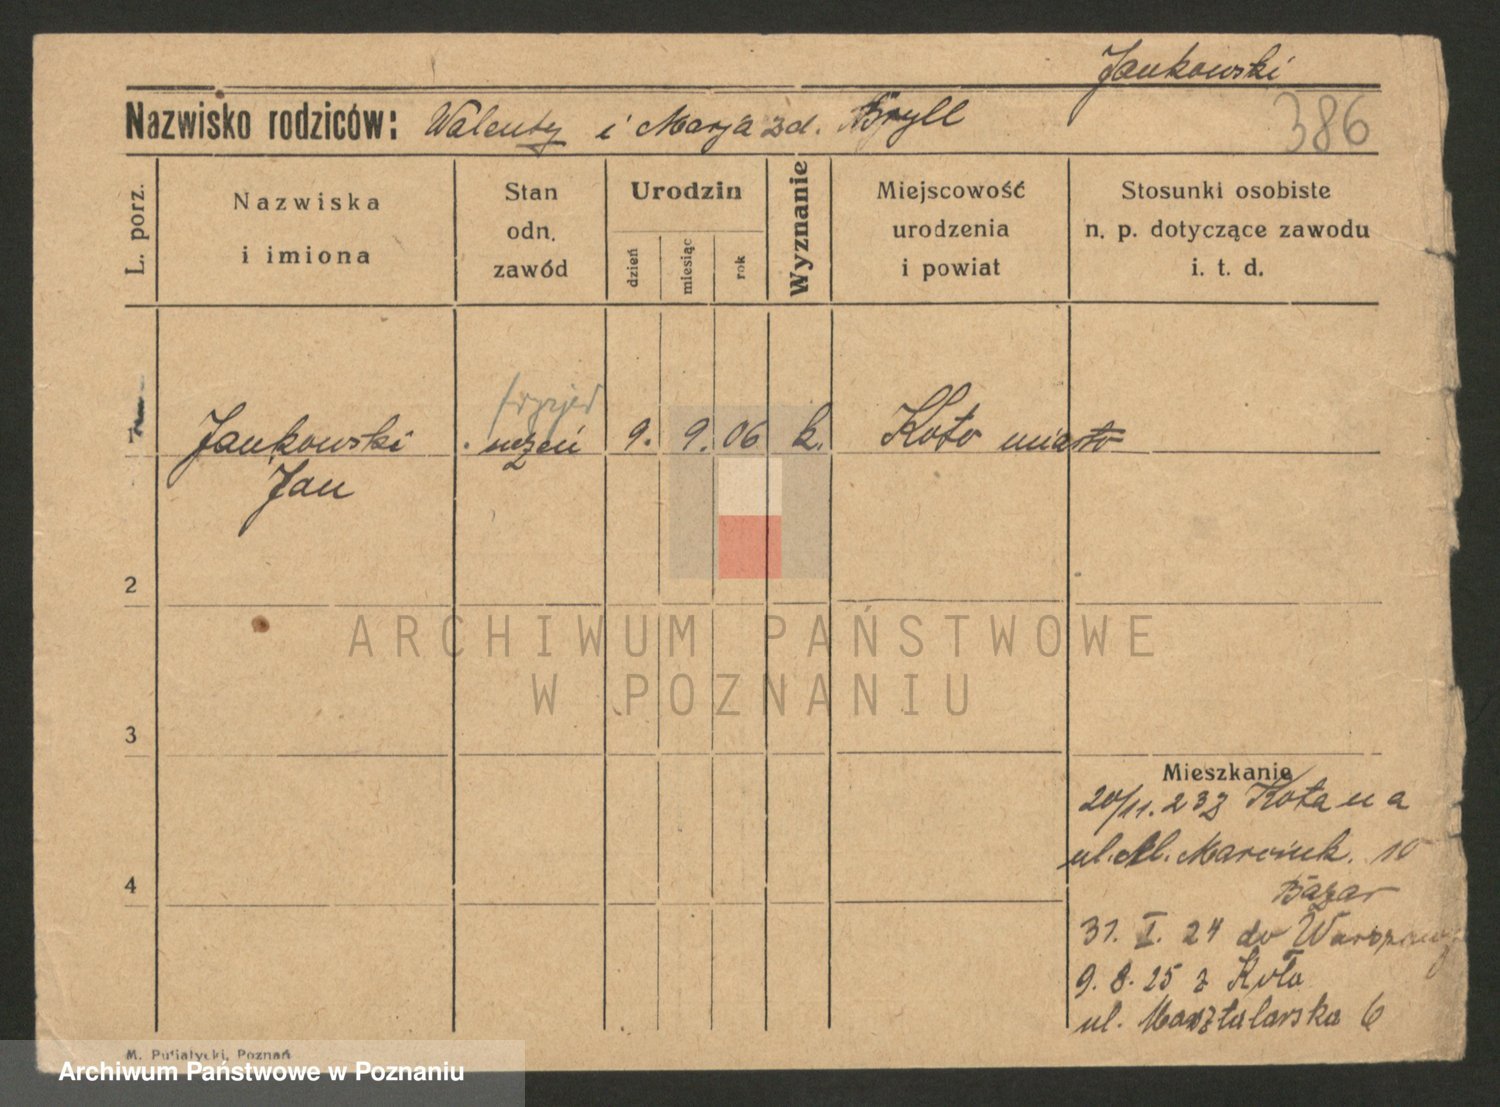 Jankowski
Nazwisko rodziców: Walenty i Marja zd. Bryll
386
L. porz.
Nazwiska
i imiona
Stan
odn.
zawód
Urodzin
dzień
miesiąc
rok
Wyznanie
Miejscowość
urodzenia
i powiat
Stosunki osobiste
n. p. dotyczące zawodu
i. t. d.
fryzjer
Jankowski uczeń 9. 9. 06 k. Koło miasto
Jan
2
3
4
ARCHIWUM PAŃSTWOWE
W POZNANIU
Mieszkanie
20/11. 23 z Koła na
ul. Al. Marcink. 10
Bazar
31. I. 24 do Warszawy
9. 8. 25 z Koła
ul. Masztalarska 6
M. Putiatycki, Poznań
Archiwum Państwowe w Poznaniu